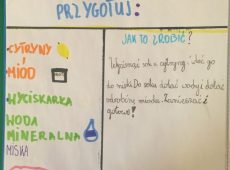 PRZYGOTUJ:
CYTRYNY
MIÓD
WYCISKARKA
WODA
MINERALNA
MISKA
JAK TO ZROBIĆ?
Wycisnąć sok z cytryny i wlać go
do miski. Do soku dolać wody i dodać
odrobinę miodu. Zamieszać i
gotowe!